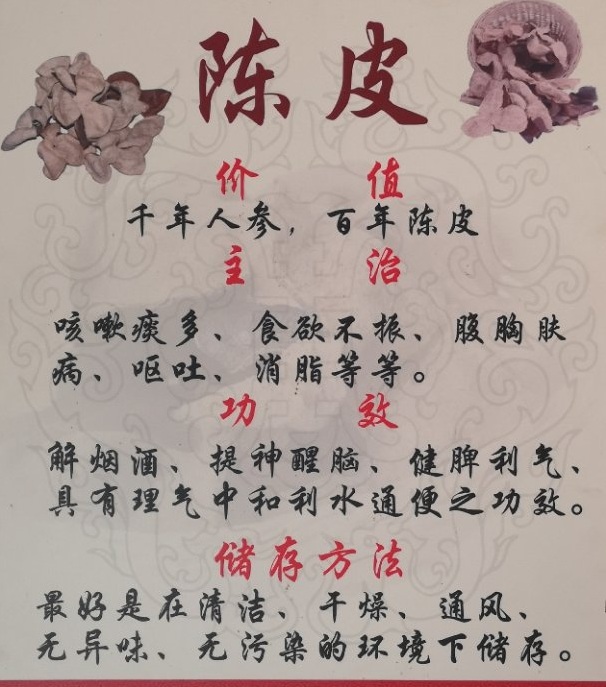 陈皮
价值
千年人参，百年陈皮
主治
咳嗽痰多、食欲不振、腹胸肤
病、呕吐、消脂等等。
功效
解烟酒、提神醒脑、健脾利气、
具有理气中和利水通便之功效。
储存方法
最好是在清洁、干燥、通风、
无异味、无污染的环境下储存。